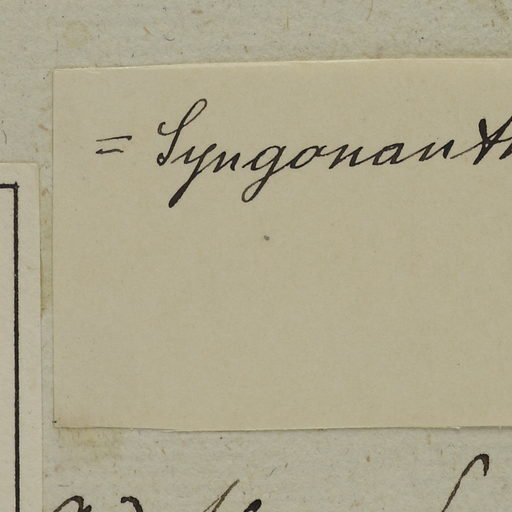 = Syngonanth